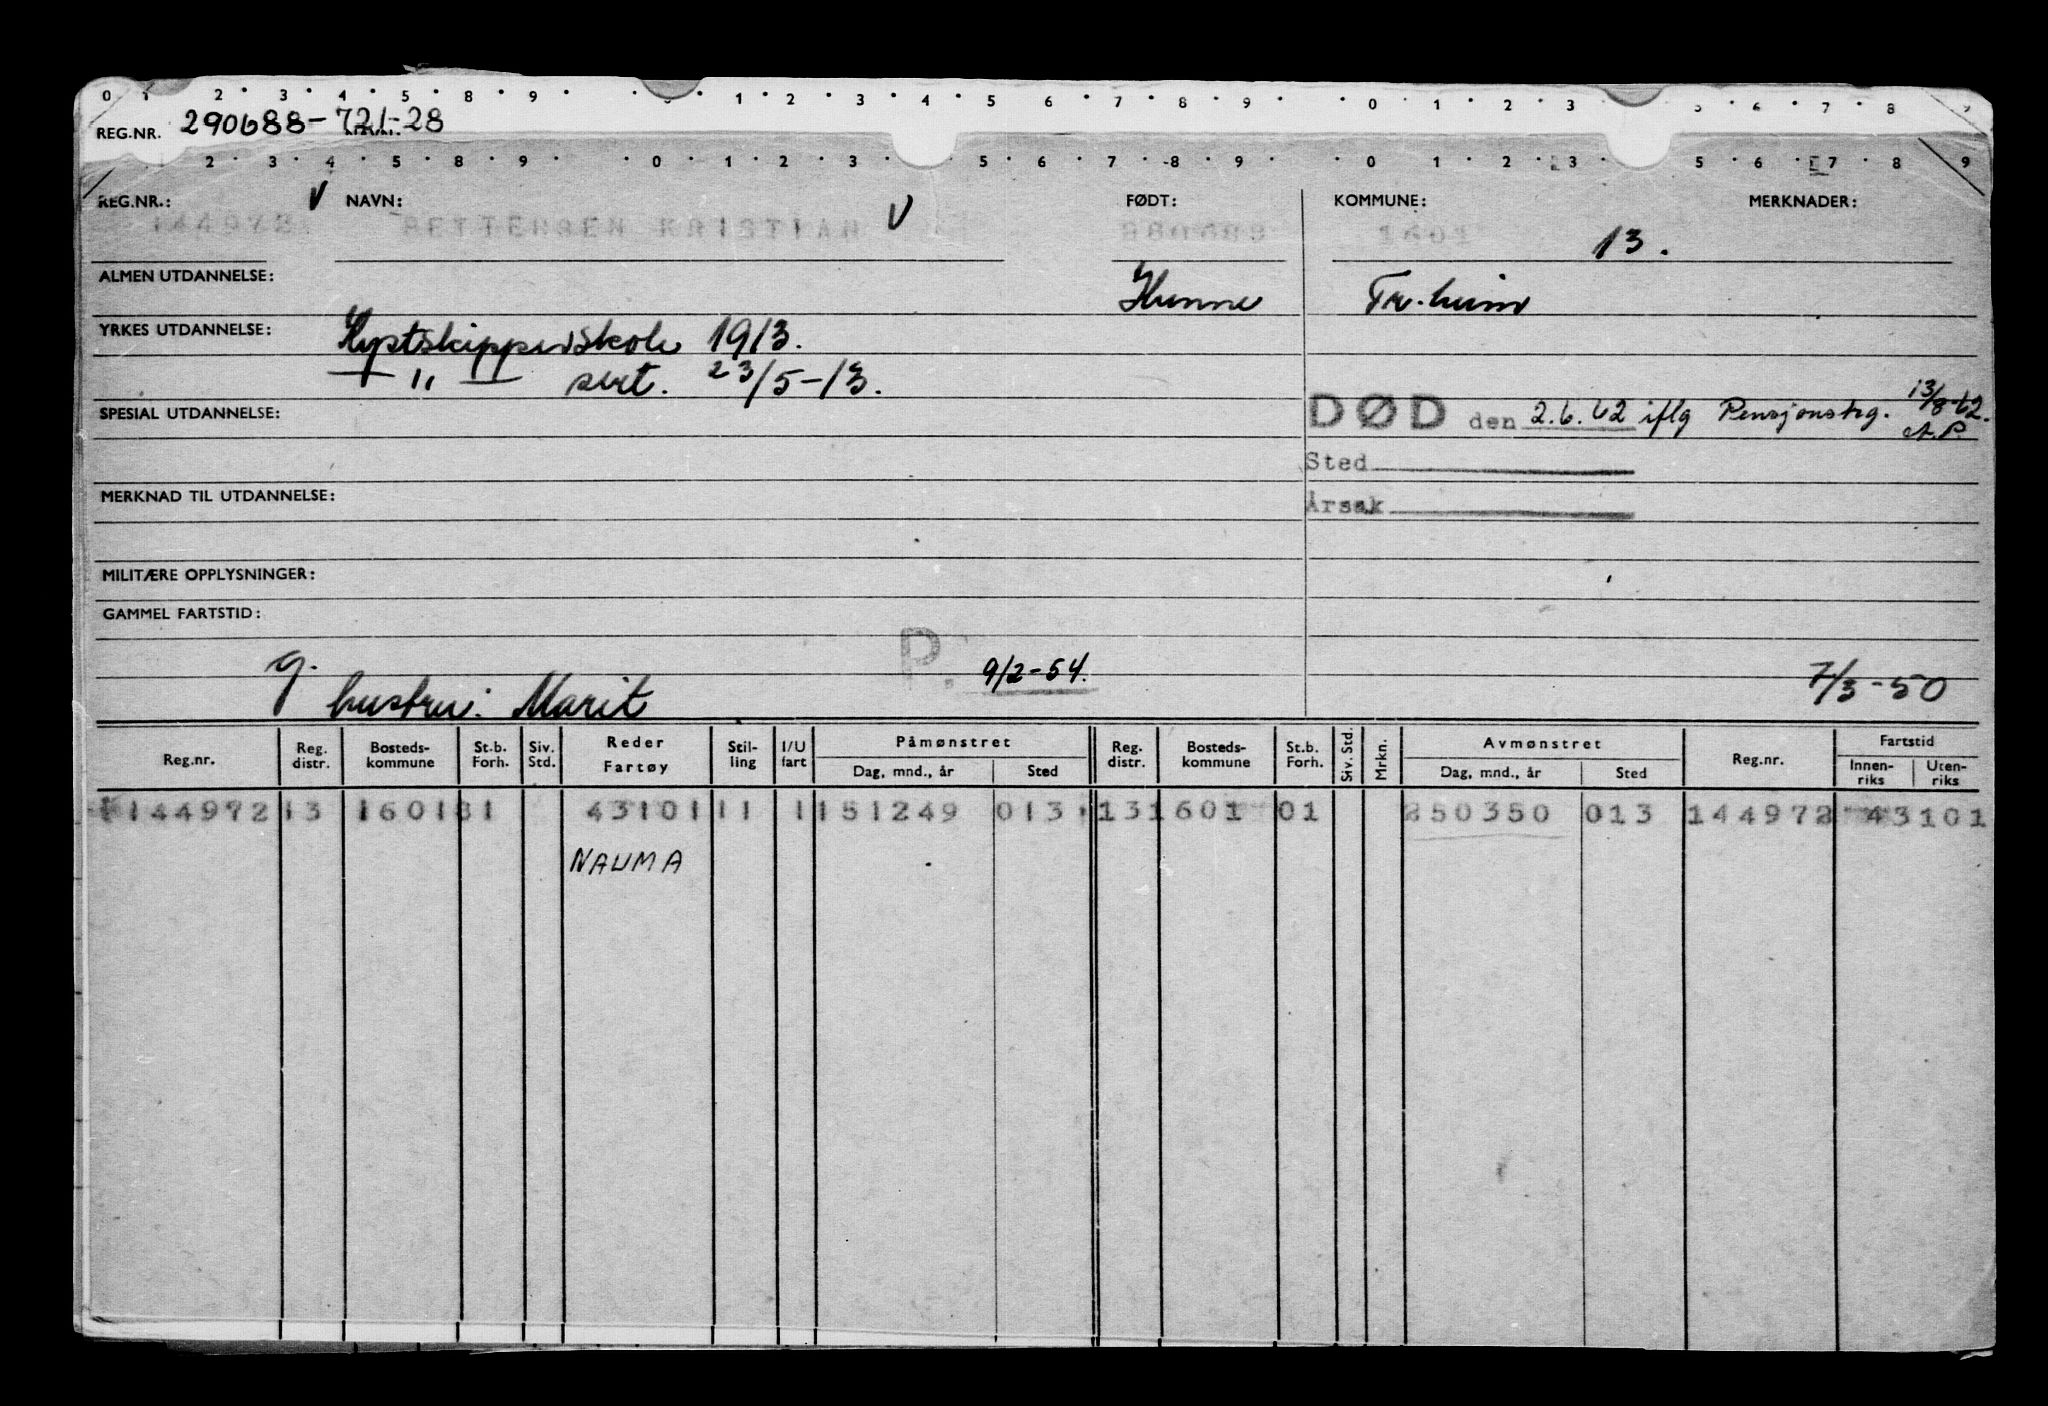 0 1 2 3 4 5 8 9 1 2 3 4 5 6 7 8 9 0 1 2 3 5 6 7 8 9
REG.NR. 290688-721-28
2 3 4 5 8 9 0 1 2 3 5 6 7 8 9 0 1 2 3 5 6 7 8 9
REG.NR.: V NAVN: FØDT: KOMMUNE: MERKNADER:
144972 PETTERSEN KRISTIAN V 290688 1601 13.
ALMEN UTDANNELSE: Hunne Tr.heim
YRKES UTDANNELSE: Kystskipperskole 1913.
— " — sert. 23/5-13.
SPESIAL UTDANNELSE: DØD den 2.6.62 iflg Pensjonstrg. 13/8-62. A.P.
Sted
MERKNAD TIL UTDANNELSE: Årsak
MILITÆRE OPPLYSNINGER:
GAMMEL FARTSTID:
g. P. 9/2-54. 7/3-50
hustru: Marit
Reg.nr. Reg. distr. Bosteds-kommune St.b. Forh. Siv. Std. Reder Fartøy Stil-ling I/U fart Påmønstret Dag, mnd., år Sted Reg. distr. Bosteds-kommune St.b. Forh. Siv. Std. Mrkn. Avmønstret Dag, mnd., år Sted Reg.nr. Fartstid Innen-riks Uten-riks
144972 13 1601 31 43101 11 1 151249 013 13 1601 01 250350 013 144972 43101
NAUMA